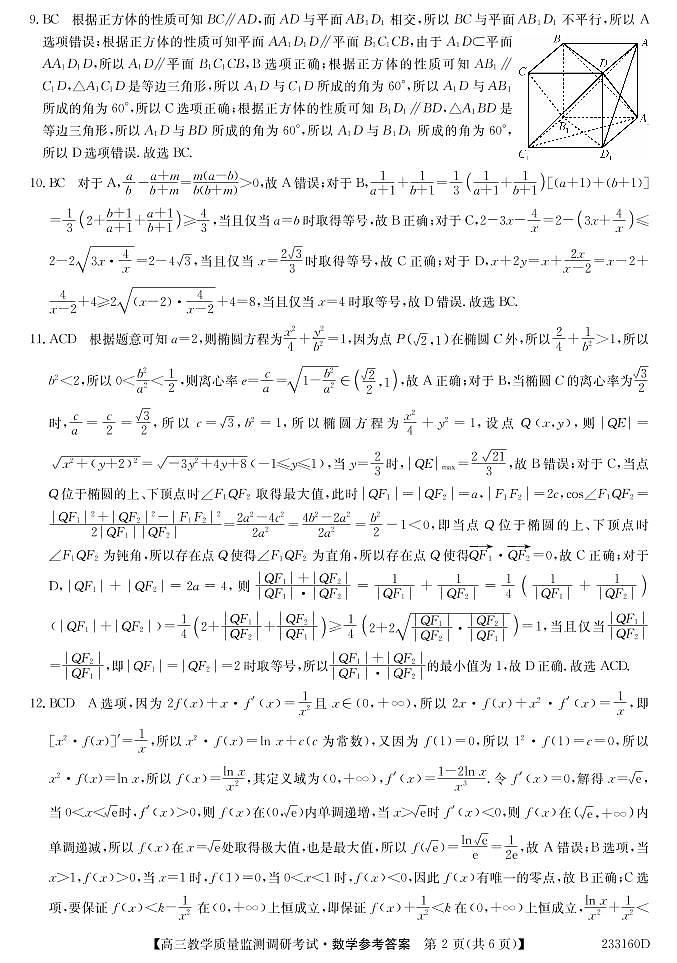 9. BC 根据正方体的性质可知 BC∥AD,而 AD 与平面 AB₁D₁ 相交,所以 BC 与平面 AB₁D₁ 不平行,所以 A
选项错误;根据正方体的性质可知平面 AA₁D₁D∥平面 B₁C₁CB,由于 A₁D⊂平面
AA₁D₁D,所以 A₁D∥平面 B₁C₁CB,B 选项正确;根据正方体的性质可知 AB₁∥
C₁D,△A₁C₁D 是等边三角形,所以 A₁D 与 C₁D 所成的角为 60°,所以 A₁D 与 AB₁
所成的角为 60°,所以 C 选项正确;根据正方体的性质可知 B₁D₁∥BD,△A₁BD 是
等边三角形,所以 A₁D 与 BD 所成的角为 60°,所以 A₁D 与 B₁D₁ 所成的角为 60°,
所以 D 选项错误. 故选 BC.
B A
C D
B₁ A₁
C₁ D₁
10. BC 对于 A, a/b - (a+m)/(b+m) = m(a-b)/(b(b+m)) >0,故 A 错误;对于 B, 1/(a+1) + 1/(b+1) = 1/3 (1/(a+1) + 1/(b+1))[(a+1)+(b+1)]
= 1/3 (2 + (b+1)/(a+1) + (a+1)/(b+1)) ≥ 4/3,当且仅当 a=b 时取得等号,故 B 正确;对于 C,2-3x- 4/x =2-(3x+ 4/x)≤
2-2√(3x· 4/x) =2-4√3,当且仅当 x= 2√3/3 时取得等号,故 C 正确;对于 D,x+2y=x+ 2x/(x-2) =x-2+
4/(x-2) +4≥2√((x-2)· 4/(x-2)) +4=8,当且仅当 x=4 时取等号,故 D 错误. 故选 BC.
11. ACD 根据题意可知 a=2,则椭圆方程为 x²/4 + y²/b² =1,因为点 P(√2,1)在椭圆 C 外,所以 2/4 + 1/b² >1,所以
b²<2,所以 0< b²/a² < 1/2,则离心率 e= c/a = √(1- b²/a²) ∈(√2/2,1),故 A 正确;对于 B,当椭圆 C 的离心率为 √3/2
时, c/a = c/2 = √3/2,所以 c=√3,b²=1,所以椭圆方程为 x²/4 + y²=1,设点 Q(x,y),则 |QE|=
√(x²+(y+2)²) = √(-3y²+4y+8) (-1≤y≤1),当 y= 2/3 时,|QE|max= 2√21/3,故 B 错误;对于 C,当点
Q 位于椭圆的上、下顶点时∠F₁QF₂ 取得最大值,此时 |QF₁|=|QF₂|=a,|F₁F₂|=2c,cos∠F₁QF₂=
(|QF₁|²+|QF₂|²-|F₁F₂|²)/(2|QF₁||QF₂|) = (2a²-4c²)/2a² = (4b²-2a²)/2a² = b²/2 -1<0,即当点 Q 位于椭圆的上、下顶点时
∠F₁QF₂ 为钝角,所以存在点 Q 使得∠F₁QF₂ 为直角,所以存在点 Q 使得 →QF₁·→QF₂=0,故 C 正确;对于
D,|QF₁|+|QF₂|=2a=4,则 (|QF₁|+|QF₂|)/(|QF₁|·|QF₂|) = 1/|QF₁| + 1/|QF₂| = 1/4 (1/|QF₁| + 1/|QF₂|)
(|QF₁|+|QF₂|)= 1/4 (2+ |QF₁|/|QF₂| + |QF₂|/|QF₁|) ≥ 1/4 (2+2√(|QF₁|/|QF₂| · |QF₂|/|QF₁|)) =1,当且仅当 |QF₁|/|QF₂|
= |QF₂|/|QF₁|,即|QF₁|=|QF₂|=2 时取等号,所以 (|QF₁|+|QF₂|)/(|QF₁|·|QF₂|) 的最小值为 1,故 D 正确. 故选 ACD.
12. BCD A 选项,因为 2f(x)+x·f′(x)= 1/x² 且 x∈(0,+∞),所以 2x·f(x)+x²·f′(x)= 1/x,即
[x²·f(x)]′= 1/x,所以 x²·f(x)=ln x+c(c 为常数),又因为 f(1)=0,所以 1²·f(1)=c=0,所以
x²·f(x)=ln x,所以 f(x)= ln x/x²,其定义域为(0,+∞),f′(x)= (1-2ln x)/x³. 令 f′(x)=0,解得 x=√e,
当 0<x<√e时,f′(x)>0,则 f(x)在(0,√e)内单调递增,当 x>√e时 f′(x)<0,则 f(x)在(√e,+∞)内
单调递减,所以 f(x)在 x=√e处取得极大值,也是最大值,所以 f(√e)= ln√e/e = 1/2e,故 A 错误;B 选项,当
x>1,f(x)>0,当 x=1 时,f(1)=0,当 0<x<1 时,f(x)<0,因此 f(x)有唯一的零点,故 B 正确;C 选
项,要保证 f(x)<k- 1/x² 在(0,+∞)上恒成立,即保证 f(x)+ 1/x² <k 在(0,+∞)上恒成立, ln x/x² + 1/x² <
【高三教学质量监测调研考试·数学参考答案 第 2 页(共 6 页)】 233160D